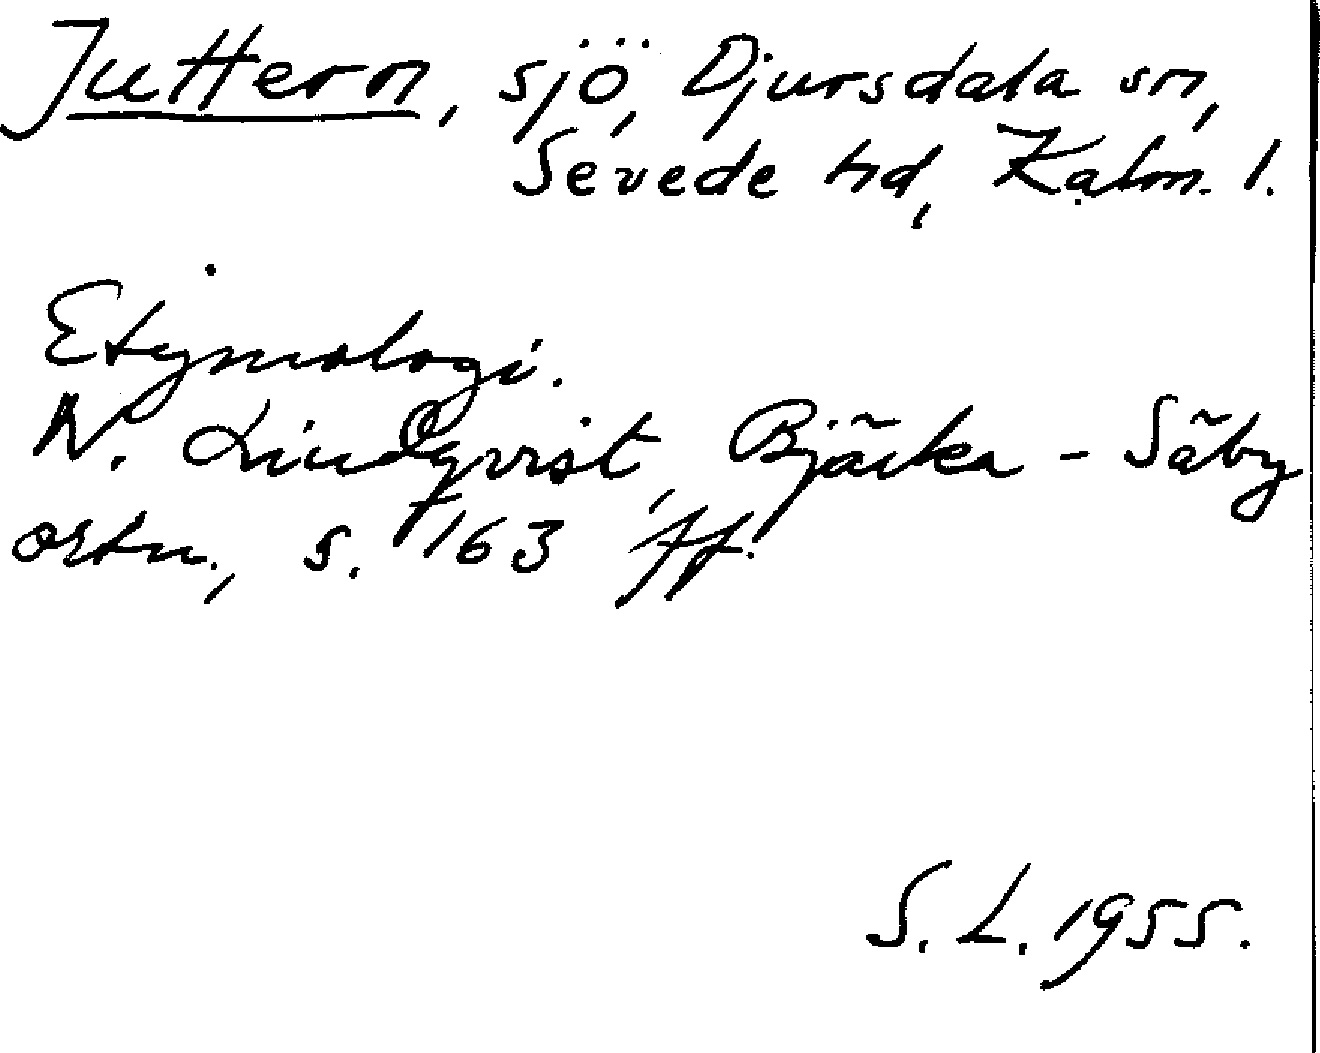 Juttern, sjö, Djursdala sn,
Sevede hd, Kalm. l.
Etymologi.
N. Lindqvist, Bjärka-Säby
ortn., s. 163 ff.
S. L. 1955.